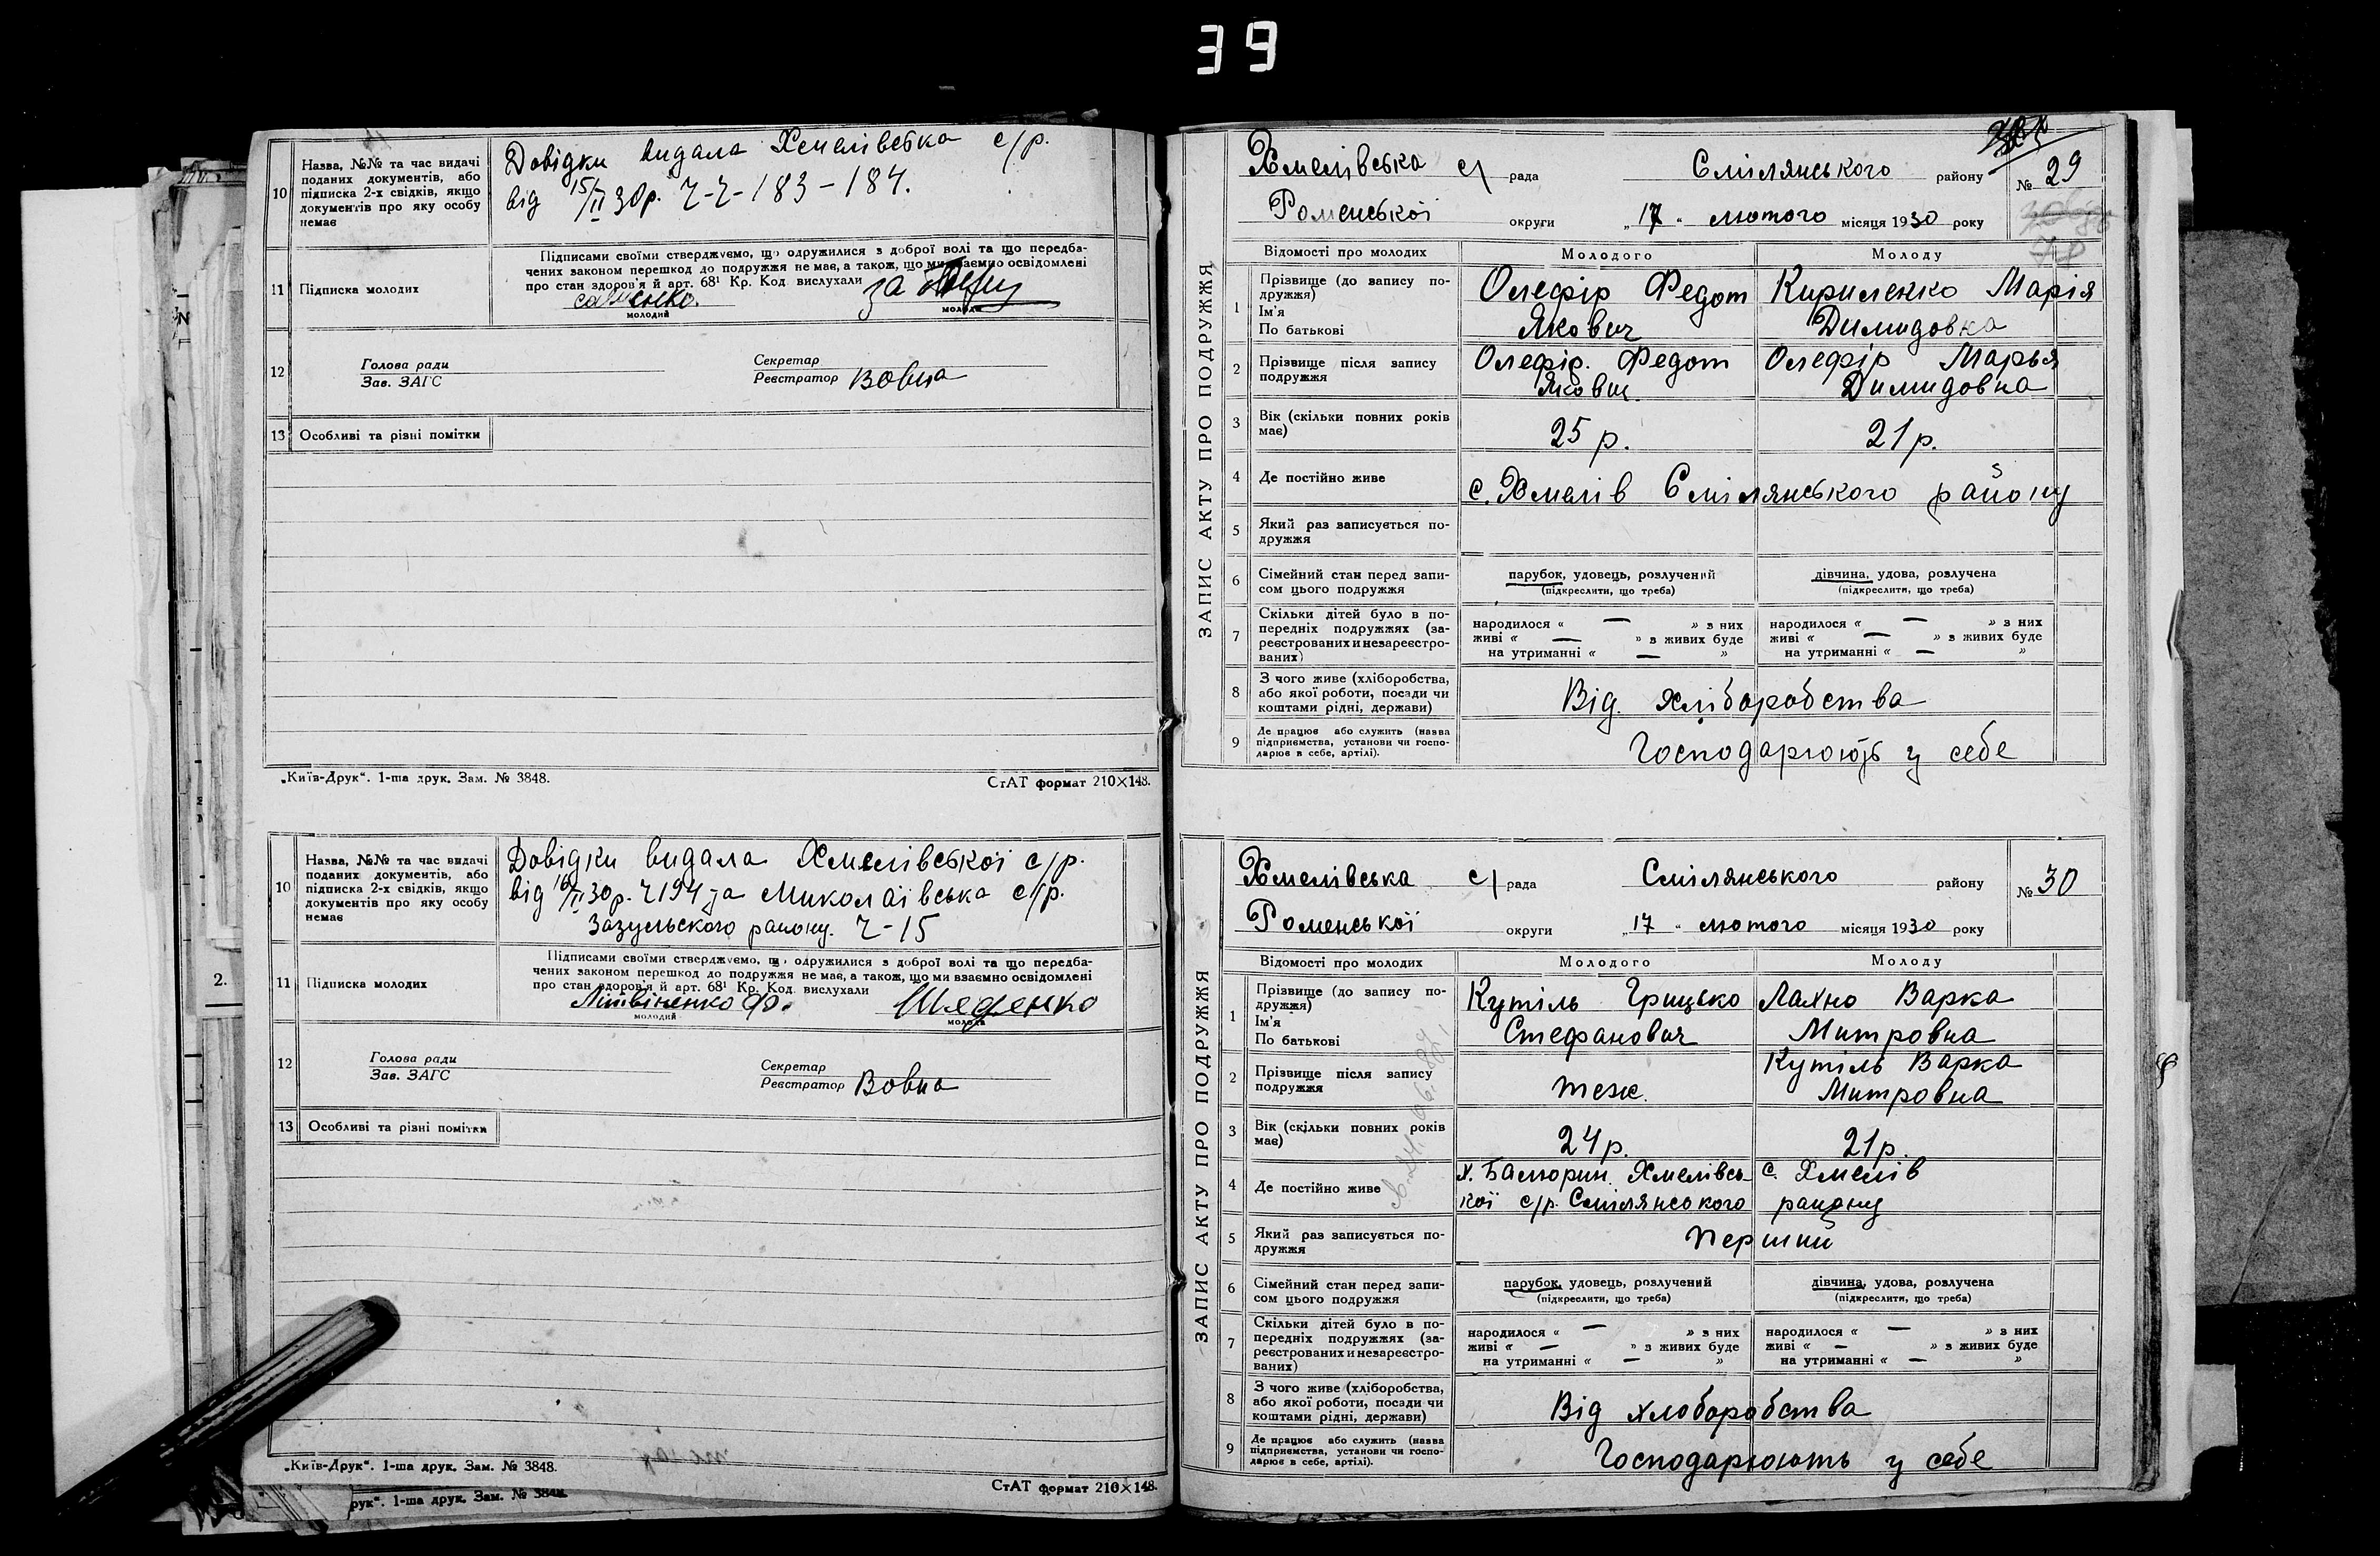 39
10
Назва, №№ та час видачі
поданих документів, або
підписка 2-х свідків, якщо
документів про яку особу
немає
Довідки видала Хмелівська с/р.
від 15/II 30р. Ч-Ч-183-184.
11
Підписка молодих
Підписами своїми стверджуємо, що одружилися з доброї волі та що передба-
чених законом перешкод до подружжя не має, а також, що ми взаємно освідомлені
про стан здоров'я й арт. 68¹ Кр. Код вислухали
за
молодий
молода
12
Голова ради
Зав. ЗАГС
Секретар
Реєстратор Вовна
13
Особливі та різні помітки
„Київ-Друк“. 1-ша друк. Зам. № 3848.
СтАТ формат 210×148.
10
Назва, №№ та час видачі
поданих документів, або
підписка 2-х свідків, якщо
документів про яку особу
немає
Довідки видала Хмелівської с/р.
від 16/II 30р. Ч194 та Миколаївська с/р.
Зазульского району. Ч-15
11
Підписка молодих
Підписами своїми стверджуємо, що одружилися з доброї волі та що передба-
чених законом перешкод до подружжя не має, а також, що ми взаємно освідомлені
про стан здоров'я й арт. 68¹ Кр. Код вислухали
Литвіненко Ф.
молодий
молода
12
Голова ради
Зав. ЗАГС
Секретар
Реєстратор Вовна
13
Особливі та різні помітки
„Київ-Друк“. 1-ша друк. Зам. № 3848.
СтАТ формат 210×148.
рук“. 1-ша друк. Зам. № 3848.
2.
ЗАПИС АКТУ ПРО ПОДРУЖЖЯ
Хмелівська с/ рада Смілянського району
№ 29
Роменської округи „17“ лютого місяця 1930 року
Відомості про молодих
Молодого
Молоду
1
Прізвище (до запису по-
дружжя)
Ім'я
По батькові
Олефір Федот
Якович
Кириленко Марія
Димидовка
2
Прізвище після запису
подружжя
Олефір. Федот
Якович
Олефір Марья
Димидовна
3
Вік (скільки повних років
має)
25 р.
21 р.
4
Де постійно живе
с. Хмелів Смілянського району
5
Який раз записується по-
дружжя
6
Сімейний стан перед запи-
сом цього подружжя
парубок, удовець, розлучений
(підкреслити, що треба)
дівчина, удова, розлучена
(підкреслити, що треба)
7
Скільки дітей було в по-
передніх подружжях (за-
реєстрованих и незареєстро-
ваних)
народилося « — » з них
живі « — » з живих буде
на утриманні « — »
народилося « — » з них
живі « — » з живих буде
на утриманні « — »
8
З чого живе (хліборобства,
або якої роботи, посади чи
коштами рідні, держави)
Від. хліборобства
9
Де працює або служить (назва
підприємства, установи чи госпо-
дарює в себе, артілі).
Господарюють у себе
ЗАПИС АКТУ ПРО ПОДРУЖЖЯ
Хмелівська с/ рада Смілянського району
№ 30
Роменської округи „17“ лютого місяця 1930 року
Відомості про молодих
Молодого
Молоду
1
Прізвище (до запису по-
дружжя)
Ім'я
По батькові
Кутіль Грицько
Стефанович
Лахно Варка
Митровна
2
Прізвище після запису
подружжя
теж.
Кутіль Варка
Митровна
3
Вік (скільки повних років
має)
24 р.
21 р.
4
Де постійно живе
х. Хмелівсь-
кої с/р. Смілянського
с. Хмелів
району
5
Який раз записується по-
дружжя
перший
6
Сімейний стан перед запи-
сом цього подружжя
парубок, удовець, розлучений
(підкреслити, що треба)
дівчина, удова, розлучена
(підкреслити, що треба)
7
Скільки дітей було в по-
передніх подружжях (за-
реєстрованих и незареєстро-
ваних)
народилося « — » з них
живі « — » з живих буде
на утриманні « — »
народилося « — » з них
живі « — » з живих буде
на утриманні « — »
8
З чого живе (хліборобства,
або якої роботи, посади чи
коштами рідні, держави)
Від хлоборобства
9
Де працює або служить (назва
підприємства, установи чи госпо-
дарює в себе, артілі).
Господарюють у себе